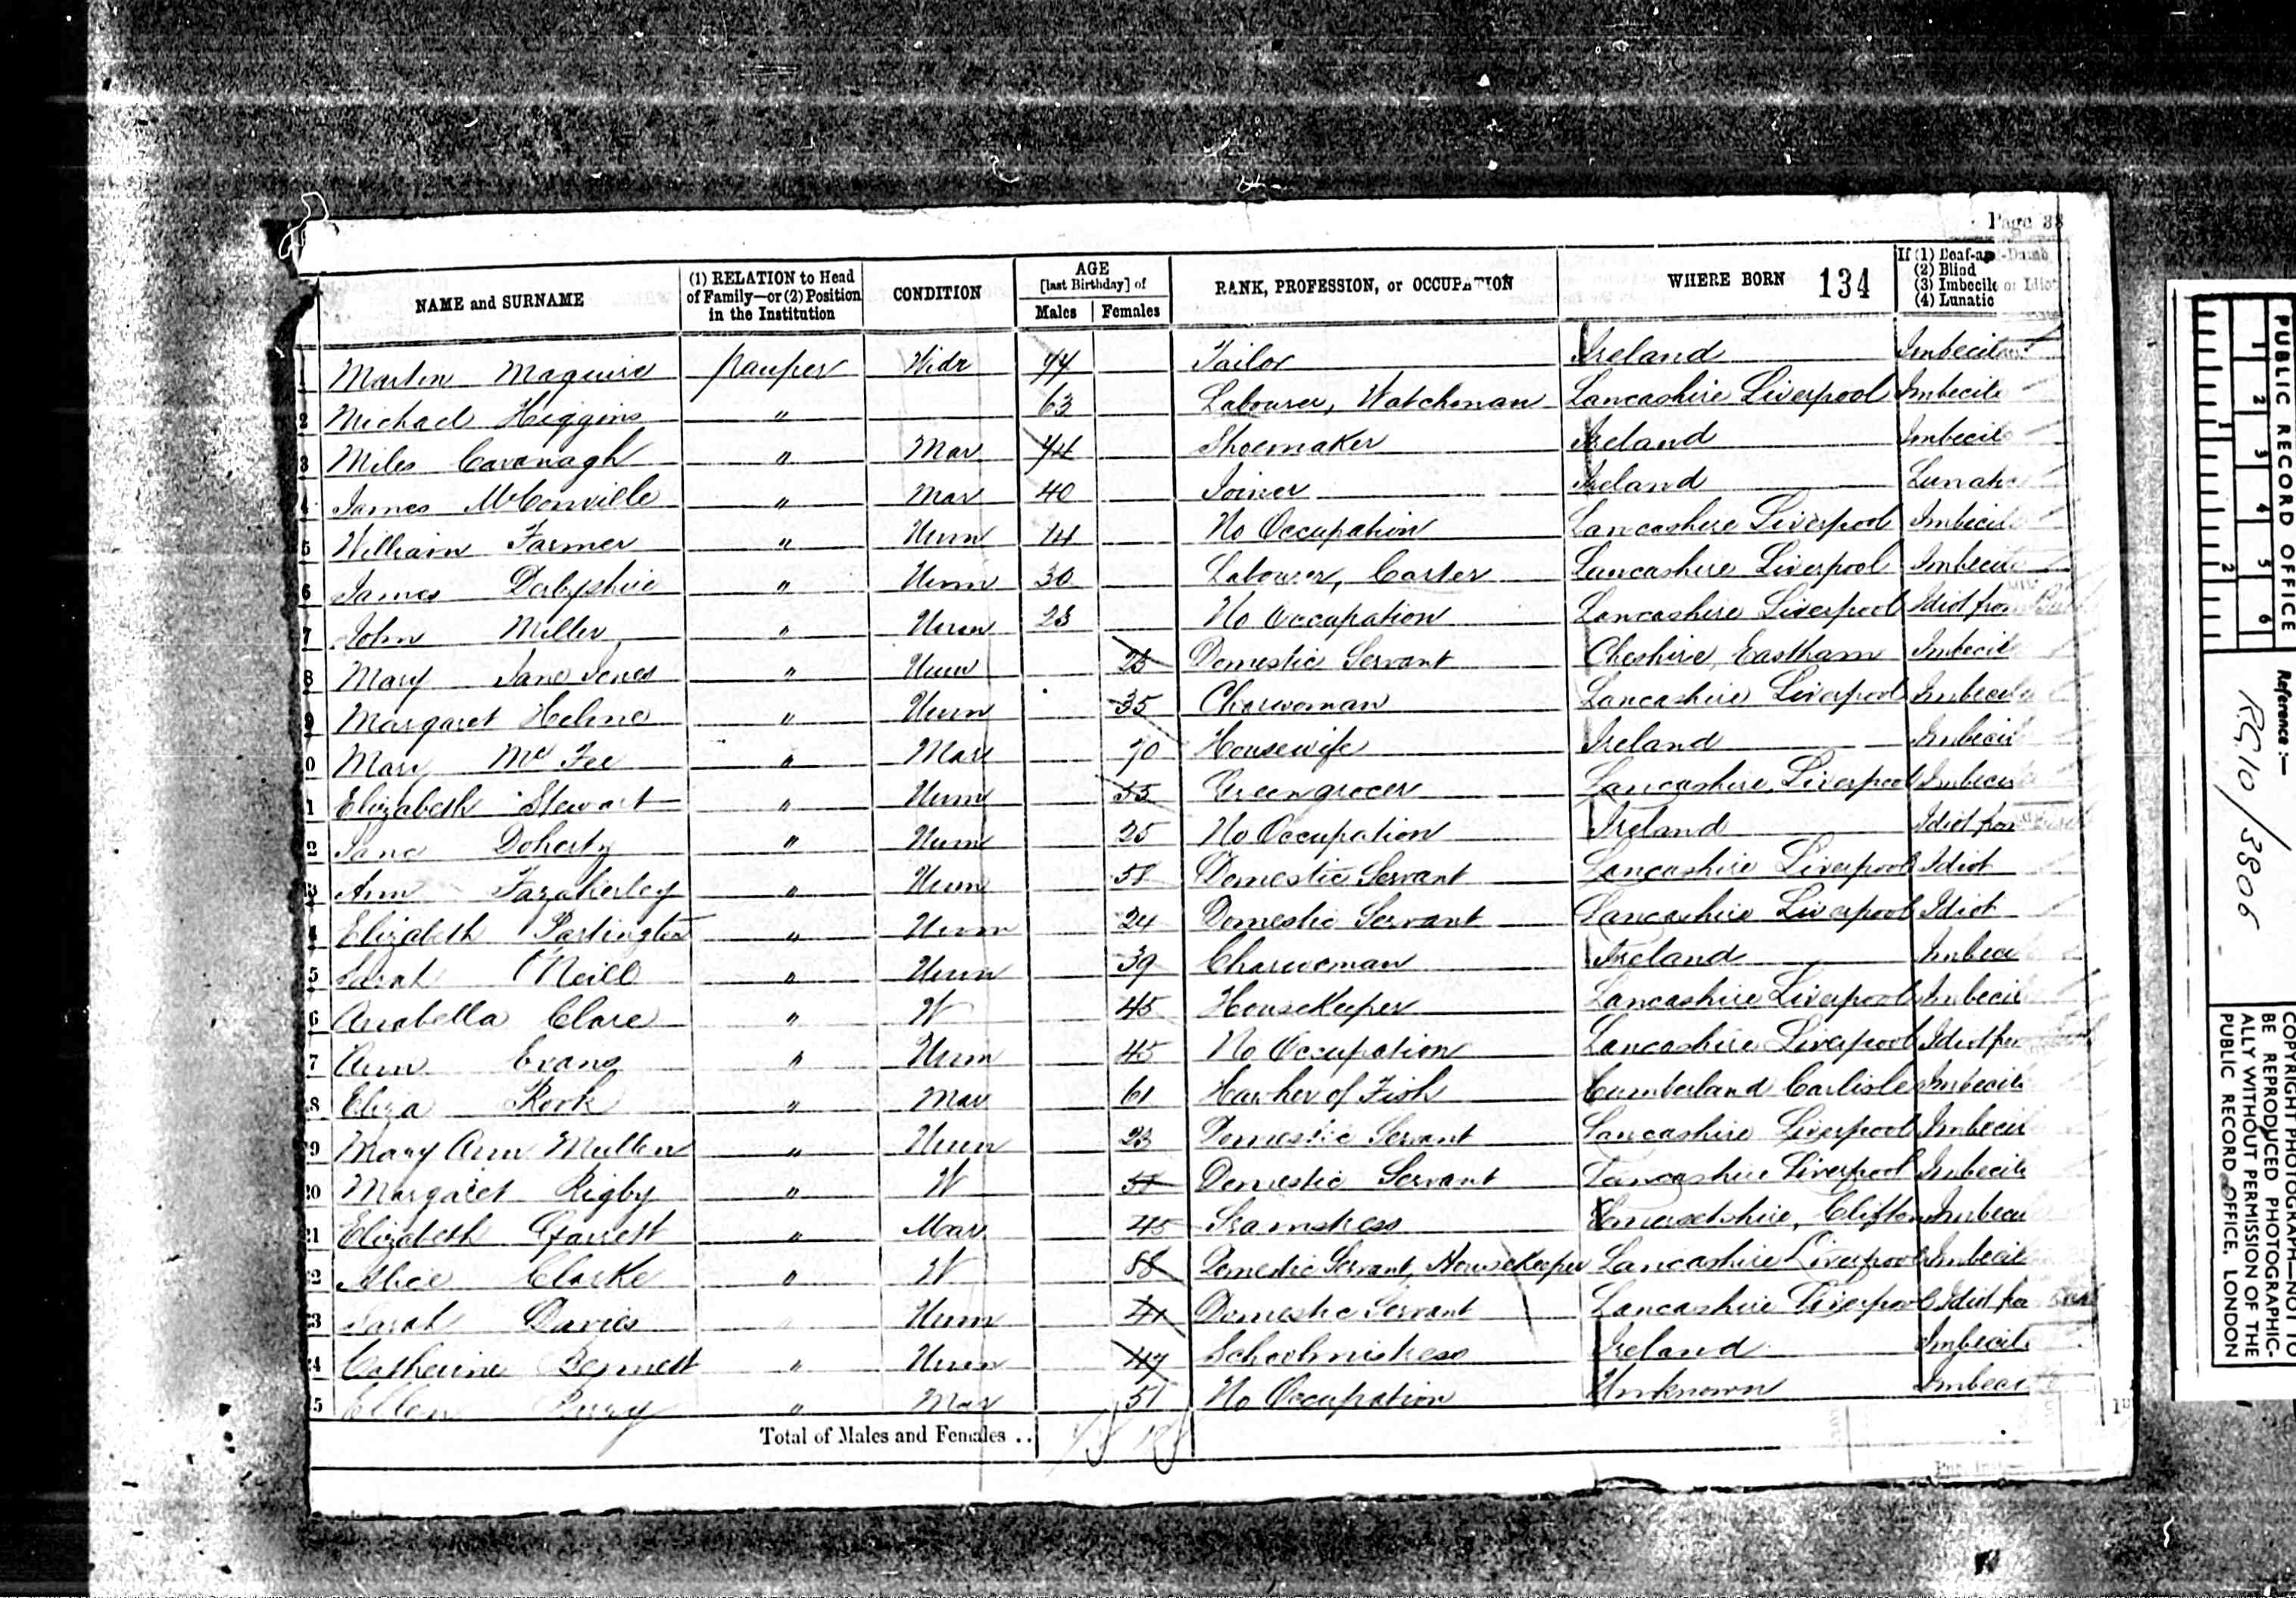 Page 33
NAME and SURNAME (1) RELATION to Head of Family—or (2) Position in the Institution CONDITION AGE [last Birthday] of Males Females RANK, PROFESSION, or OCCUPATION WHERE BORN 134 If (1) Deaf-and-Dumb (2) Blind (3) Imbecile or Idiot (4) Lunatic
1 Martin Maguire pauper Widr 74 Tailor Ireland Imbecile
2 Michael Higgins " 63 Labourer, Watchman Lancashire Liverpool Imbecile
3 Miles Cavanagh " Mar 44 Shoemaker Ireland Imbecile
4 James McConville " Mar 40 Joiner Ireland Lunatic
5 William Farmer " Unm 14 No Occupation Lancashire Liverpool Imbecile
6 James Derbyshire " Unm 30 Labourer, Carter Lancashire Liverpool Imbecile
7 John Miller " Unm 23 No Occupation Lancashire Liverpool Idiot from
8 Mary Jane Jones " Unm 23 Domestic Servant Cheshire, Eastham Imbecil
9 Margaret Helme " Unm 35 Charwoman Lancashire Liverpool Imbecile
0 Mary McFee " Mar 70 Housewife Ireland Imbecil
1 Elizabeth Stewart " Unm 53 Greengrocer Lancashire, Liverpool Imbecil
2 Jane Doherty " Unm 25 No Occupation Ireland Idiot from
3 Ann Fazakerley " Unm 58 Domestic Servant Lancashire Liverpool Idiot
4 Elizabeth Partington " Unm 24 Domestic Servant Lancashire Liverpool Idiot
5 Sarah O'Neill " Unm 39 Charwoman Ireland Imbeci
6 Anabella Clare " W 45 HouseKeeper Lancashire Liverpool Imbecil
7 Ann Evans " Unm 45 No Occupation Lancashire Liverpool Idiot from
8 Eliza Rook " Mar 61 Hawker of Fish Cumberland Carlisle Imbecile
19 Mary Ann Mullen " Unm 23 Domestic Servant Lancashire Liverpool Imbecil
20 Margaret Rigby " W Domestic Servant Lancashire Liverpool Imbecile
21 Elizabeth Garrett " Mar 45 Seamstress Somersetshire, Clifton Imbecil
2 Alice Clarke " W 58 Domestic Servant, HouseKeeper Lancashire Liverpool Imbecil
3 Sarah Davies " Unm 41 Domestic Servant Lancashire Liverpool Idiot from
4 Catherine Bennett " Unm 47 Schoolmistress Ireland Imbecile
5 Ellen Berry " Mar 51 No Occupation Unknown Imbeci
Total of Males and Females .. 7 18
PUBLIC RECORD OFFICE
1 2 3 4 5 6
1 2
Reference:—
RG 10/3806
COPYRIGHT PHOTOGRAPH—NOT TO
BE REPRODUCED PHOTOGRAPHIC-
ALLY WITHOUT PERMISSION OF THE
PUBLIC RECORD OFFICE, LONDON